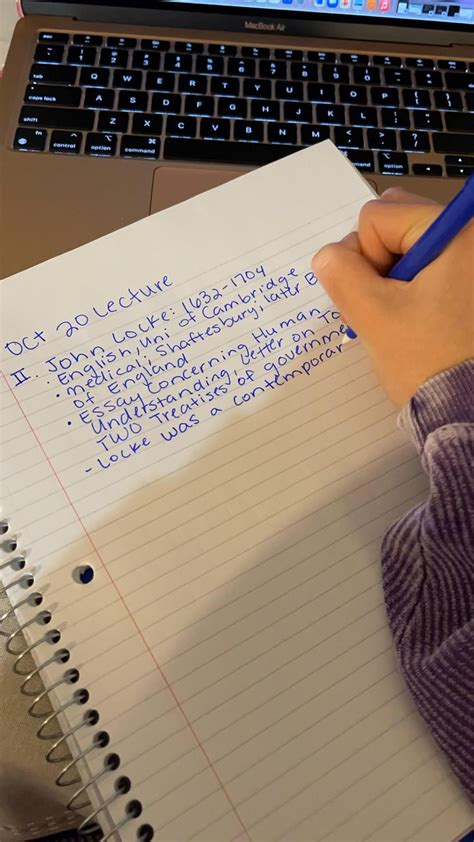 MacBook Air
Q W E R T Y U I O P
A S D F G H J K L
Z X C V B N M
tab
caps lock
shift
fn control option command
command option
Oct 20 Lecture
II. John Locke: 1632-1704
• English, Uni of Cambridge
• medical; Shaftesbury, later B
of England
• Essay Concerning Human
Understanding, Letter on To
TWO Treatises of governme
- Locke was a contemporar